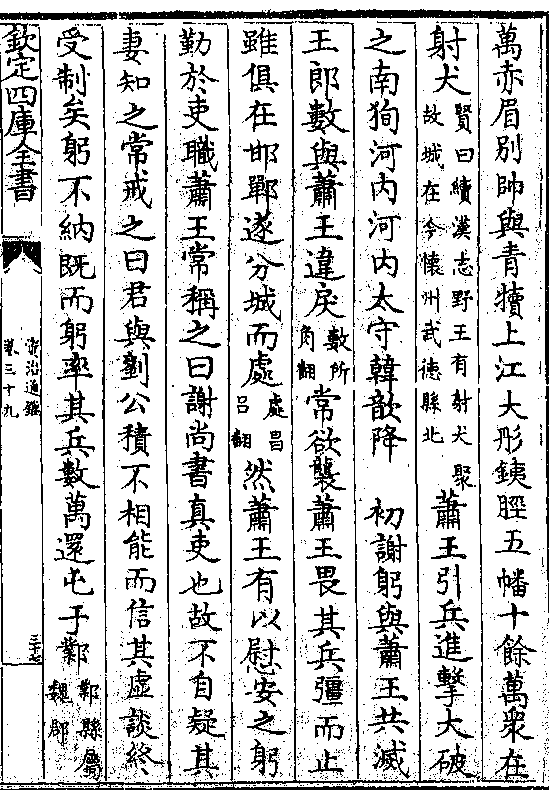 萬赤眉别帥與青犢上江大彤鐵脛五幡十餘萬衆在
射犬賢曰續漢志野王有射犬聚故城在今懷州武徳縣北蕭王引兵進擊大破
之南狥河内河内太守韓歆降 初謝躬與蕭王共滅
王郎數與蕭王違戾數所角翻常欲襲蕭王畏其兵彊而止
雖俱在邯鄲遂分城而處處昌吕翻然蕭王有以慰安之躬
勤於吏職蕭王常稱之曰謝尚書真吏也故不自疑其
妻知之常戒之曰君與劉公積不相能而信其虚談終
受制矣躬不納既而躬率其兵數萬還屯于鄴鄴縣屬魏郡
欽定四庫全書
資治通鑑
卷三十九
三十七